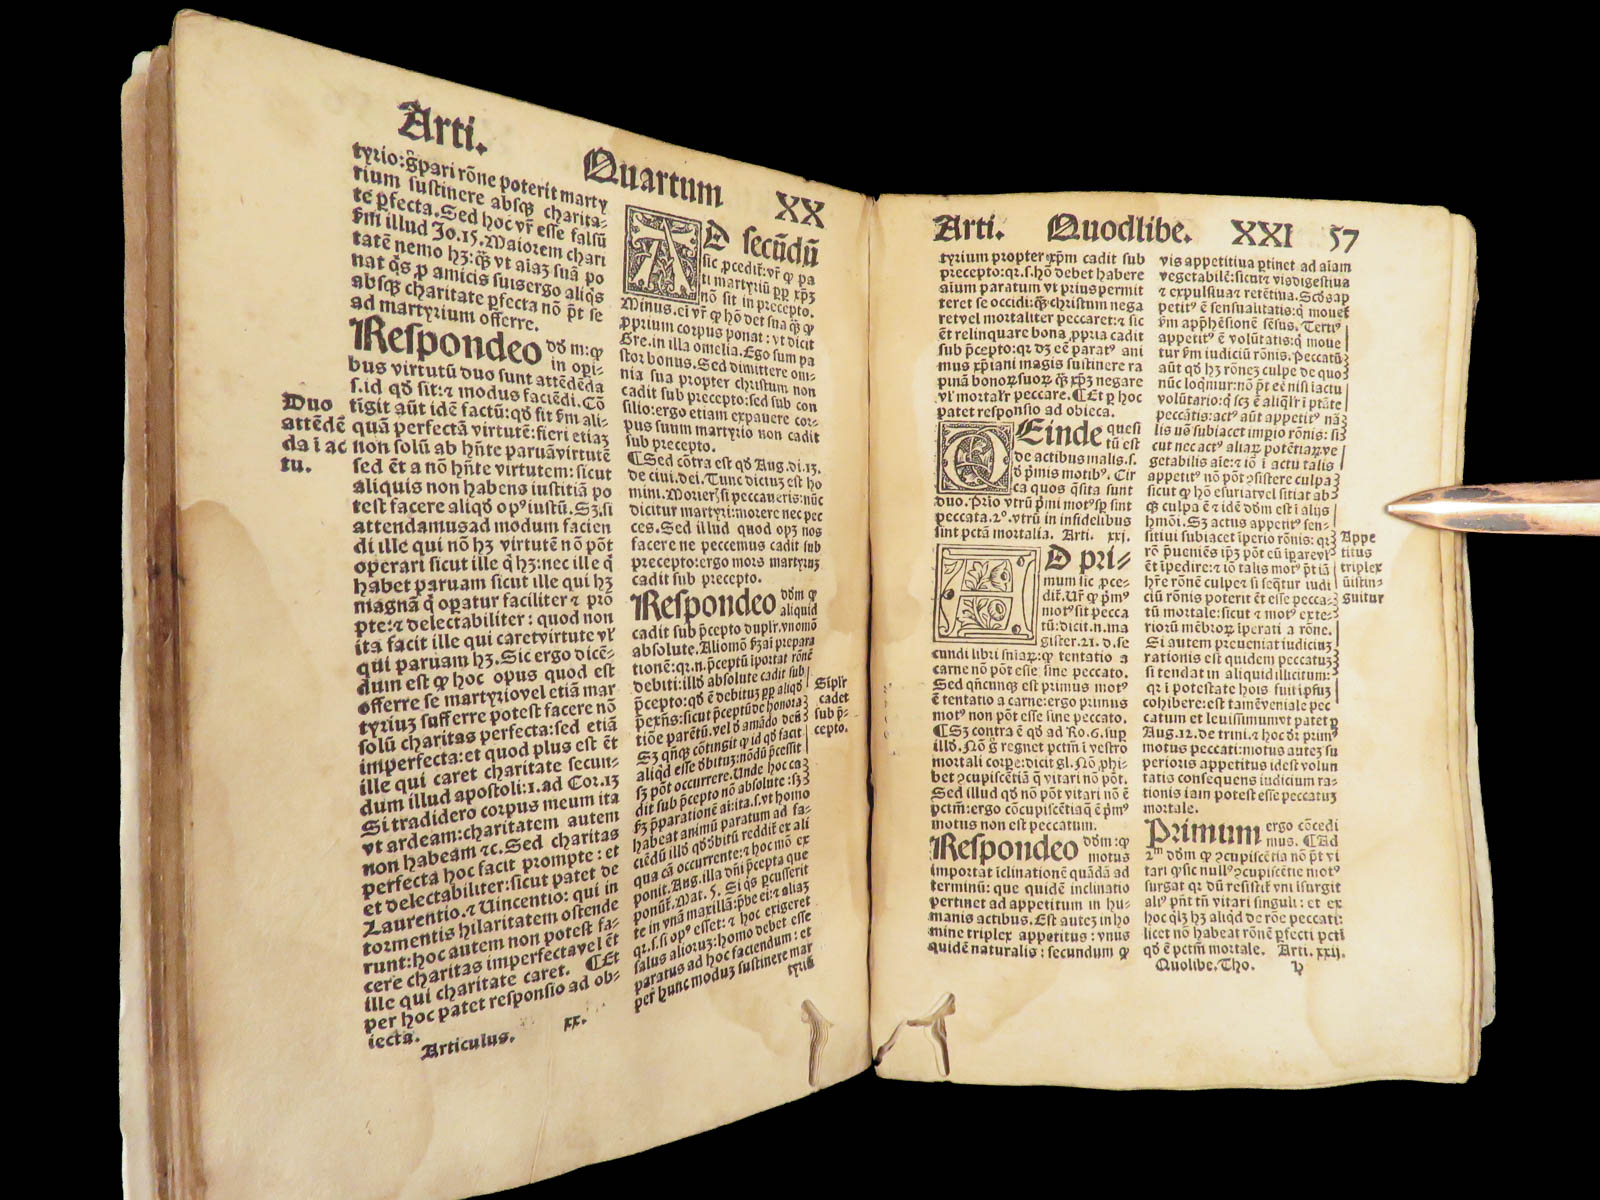 Arti.
Quartum
XX
tyrio: g̃ pari rõne poterit marty
rium sustinere absq̃ charita-
te p̱fecta. Sed hoc vr̃ esse falsũ
ẜm illud Jo. 15. Maiorem chari
tatẽ nemo hꝫ: q̃ꝫ vt aĩaꝫ suã po
nat q̃s p̱ amicis suis ergo aliq̃s
absq̃ charitate p̱fecta nõ p̃t se
ad martyrium offerre.
Respondeo dõm: ꝙ
in opi-
bus virtutũ duo sunt attẽdẽda
s. id qđ fit: ⁊ modus faciẽdi. Cõ
tĩgit aũt idẽ factũ: qđ fit ẜm ali-
quã perfectã virtutẽ: fieri etiaꝫ
non solũ ab hñte paruã virtutẽ
sed ẽt a nõ hñte virtutem: sicut
aliquis non habens iustitiã po
test facere aliqđ opꝰ iustũ. Sꝫ si
attendamus ad modum facien
di ille qui nõ hꝫ virtutẽ nõ põt
operari sicut ille q̃ hꝫ: nec ille q̃
habet paruam sicut ille qui hꝫ
magnã q̃ op̱atur faciliter ⁊ prõ
pte: ⁊ delectabiliter: quod non
ita facit ille qui caret virtute vl̃
qui paruam hꝫ. Sic ergo dicẽ-
dum est ꝙ hoc opus quod est
offerre se martyrio vel etiã mar
tyriuꝫ sufferre potest facere nõ
solũ charitas perfecta: sed etiã
imperfecta: et quod plus est ẽt
ille qui caret charitate secun-
dum illud apostoli: 1. ad Cor. 13
Si tradidero corpus meum ita
vt ardeam: charitatem autem
non habeam ⁊c. Sed charitas
perfecta hoc facit prompte: et
et delectabiliter: sicut patet de
Laurentio. ⁊ Vincentio: qui in
tormentis hilaritatem ostende
runt: hoc autem non potest fa-
cere charitas imperfecta vel ẽt
ille qui charitate caret. ¶Et
per hoc patet responsio ad ob-
iecta.
Articulus. xx.
Duo
attẽdẽ
da i ac
tu.
AD secũdũ
sic p̱cedit̃: vr̃ ꝙ pa
ti martyriũ pp̱ xp̃ꝫ
nõ sit in precepto.
Minus. ei vr̃ ꝙ hõ det sua q̃ꝫ ꝙ
p̱prium corpus ponat: vt dicit
Gre. in illa omelia. Ego sum pa
stor bonus. Sed dimittere om-
nia sua propter christum non
cadit sub precepto: sed sub con
silio: ergo etiam expauere cor-
pus suum martyrio non cadit
sub precepto.
¶Sed cõtra est qđ Aug. di. 13.
de ciui. dei. Tunc dictuꝫ est ho
mini. Morieris si peccaueris: nũc
dicitur martyri: morere nec pec
ces. Sed illud quod opꝫ nos
facere ne peccemus cadit sub
precepto: ergo mors martyruꝫ
cadit sub precepto.
Respondeo dõm ꝙ
aliquid
cadit sub p̃cepto duplr̃. vno mõ
absolute. Alio mõ ẜꝫ ai prepara
tionẽ: qr̃. n. p̃ceptũ iportat rõnẽ
debiti: illđ absolute cadit sub
p̃cepto: qđ ẽ debituꝫ pp̱ aliqđ
p̃exñs: sicut p̃ceptũ de honora
tiõe parẽtũ. vel đ amãdo deũ
Sꝫ qñq̃ cõtingit ꝙ id qđ facit
aliqđ esse đbituꝫ: nõdũ p̃cessit
sꝫ põt occurrere. Unde hoc ca
dit sub p̃cepto nõ absolute: sꝫ
ẜꝫ p̃parationẽ ai: ita. s. vt homo
habeat animũ paratum ad fa-
ciẽdũ illđ qđ đbitũ reddit̃ ex ali
qua cã occurrente: ⁊ hoc mõ ex
ponit. Aug. illa dñi p̃cepta que
ponũt̃. Mat. 5. Si q̃s p̱cusserit
te in vnã maxillã: p̃be ei: ⁊ aliaꝫ
qr̃. s. si opꝰ esset: ⁊ hoc exigeret
salus alioruꝫ: homo debet esse
paratus ad hoc faciendum: et
per hunc moduꝫ sustinere mar
tyriũ
Siplr̃
cadet
sub p̃-
cepto.
Arti. Quodlibe. XXI 57
tyrium propter xp̃m cadit sub
precepto: qr̃. s. hõ debet habere
aium paratum vt prius permit
teret se occidi: q̃ꝫ christum nega
ret vel mortaliter peccaret: ⁊ sic
ẽt relinquare bona p̱pria cadit
sub p̃cepto: qr̃ dꝫ eẽ paratꝰ ani
mus xp̃iani magis sustinere ra
pinã bonoꝝ suoꝝ q̃ꝫ xp̃ꝫ negare
vl̃ mortalr̃ peccare. ¶Et p̱ hoc
patet responsio ad obiecta.
QEinde quesi
tũ est
de actibus malis. s.
đ p̃mis motibꝰ. Cir
ca quos q̃sita sunt
duo. Prio vtrũ p̃mi motꝰ sp̱ sint
peccata. 2º. vtrũ in infidelibus
sint pctã mortalia. Arti. xxj.
AD pri-
mum sic p̱ce-
dit̃. Ur̃ ꝙ p̃mꝰ
motꝰ sit pecca
tũ: dicit. n. ma
gister. 21. d. se
cundi libri sn̄iaꝝ: ꝙ tentatio a
carne nõ põt esse sine peccato.
Sed qñcunq̃ est primus motꝰ
ẽ tentatio a carne: ergo primus
motꝰ non põt esse sine peccato.
¶Sꝫ contra ẽ qđ ad Ro. 6. sup̱
illđ. Nõ g̃ regnet pctm̃ i vestro
mortali corpe: dicit gl. Nõ p̱hi-
bet ↄcupiscẽtiã q̃ vitari nõ põt.
Sed illud qđ nõ põt vitari nõ ẽ
pctm̃: ergo cõcupiscẽtia q̃ ẽ p̃mꝰ
motus non est peccatum.
Respondeo dõm: ꝙ
motus
importat iclinationẽ quãdã ad
terminũ: que quidẽ inclinatio
pertinet ad appetitum in hu-
manis actibus. Est auteꝫ in ho
mine triplex appetitus: vnus
quidẽ naturalis: secundum ꝙ
vis appetitiua p̱tinet ad aĩam
vegetabilẽ: sicut ⁊ vis digestiua
⁊ expulsiua ⁊ retẽtiua. Scđs ap
petitꝰ ẽ sensualitatis: q̃ mouet̃
ẜm app̱hẽsionẽ sẽsus. Tertiꝰ
appetitꝰ ẽ volũtatis: q̃ moue
tur ẜm iudiciũ rõnis. Peccatũ
aũt qđ hꝫ rõneꝫ culpe de quo
nũc loqmur: nõ p̃t eẽ nisi i actu
volũtario: q̃ scꝫ ẽ aliqlr̃ i p̃tãte
peccãtis: actꝰ aũt appetitꝰ nã
lis nõ subiacet imp̱io rõnis: si
cut nec actꝰ aliaꝝ potẽtiaꝝ ve
getabilis aĩe: ⁊ iõ i actu talis
appetitꝰ nõ põt ↄsistere culpa
sicut ꝙ hõ esuriat vel sitiat ab
q̃ culpa ẽ ⁊ idẽ dõm est i alijs
hmõi. Sꝫ actus appetitꝰ sen-
sitiui subiacet ip̱erio rõnis: qr̃
rõ p̃ueniẽs ip̃ꝫ põt eũ ip̱are vl̃
ẽt ip̱edire: ⁊ iõ talis motꝰ p̃t iã
hr̃e rõnẽ culpe ⁊ si seq̃tur iudi
ciũ rõnis poterit ẽt esse pecca-
tũ mortale: sicut ⁊ motꝰ exte-
rioꝝ mẽbroꝝ ip̱erati a rõne.
Si autem preueniat iudiciuꝫ
rationis est quidem peccatuꝫ
si tendat in aliquid illicitum:
qr̃ i potestate hõis fuit ip̃suꝫ
cohibere: est tamẽ veniale pec
catum et leuissimum vt patet p̱
Aug. 12. de trini. ⁊ hoc dr̃ primꝰ
motus peccati: motus auteꝫ su
perioris appetitus idest volun
tatis consequens iudicium ra-
tionis iam potest esse peccatuꝫ
mortale.
Primum ergo cõcedi
mus. ¶Ad
2ᵐ dõm ꝙ ↄcupiscẽtia nõ p̃t vi
tari q̃ sic nullꝰ ↄcupiscẽtie motꝰ
surgat qr̃ dũ resistit̃ vni isurgit
aliꝰ p̃nt tñ vitari singuli: ⁊ ex
hoc qlꝫ hꝫ aliqđ de rõe peccati:
licet nõ habeat rõnẽ p̱fecti pcti
qđ ẽ pctm̃ mortale. Arti. xxij.
Quolibe. Tho. h
Appe
titus
triplex
distin-
guitur